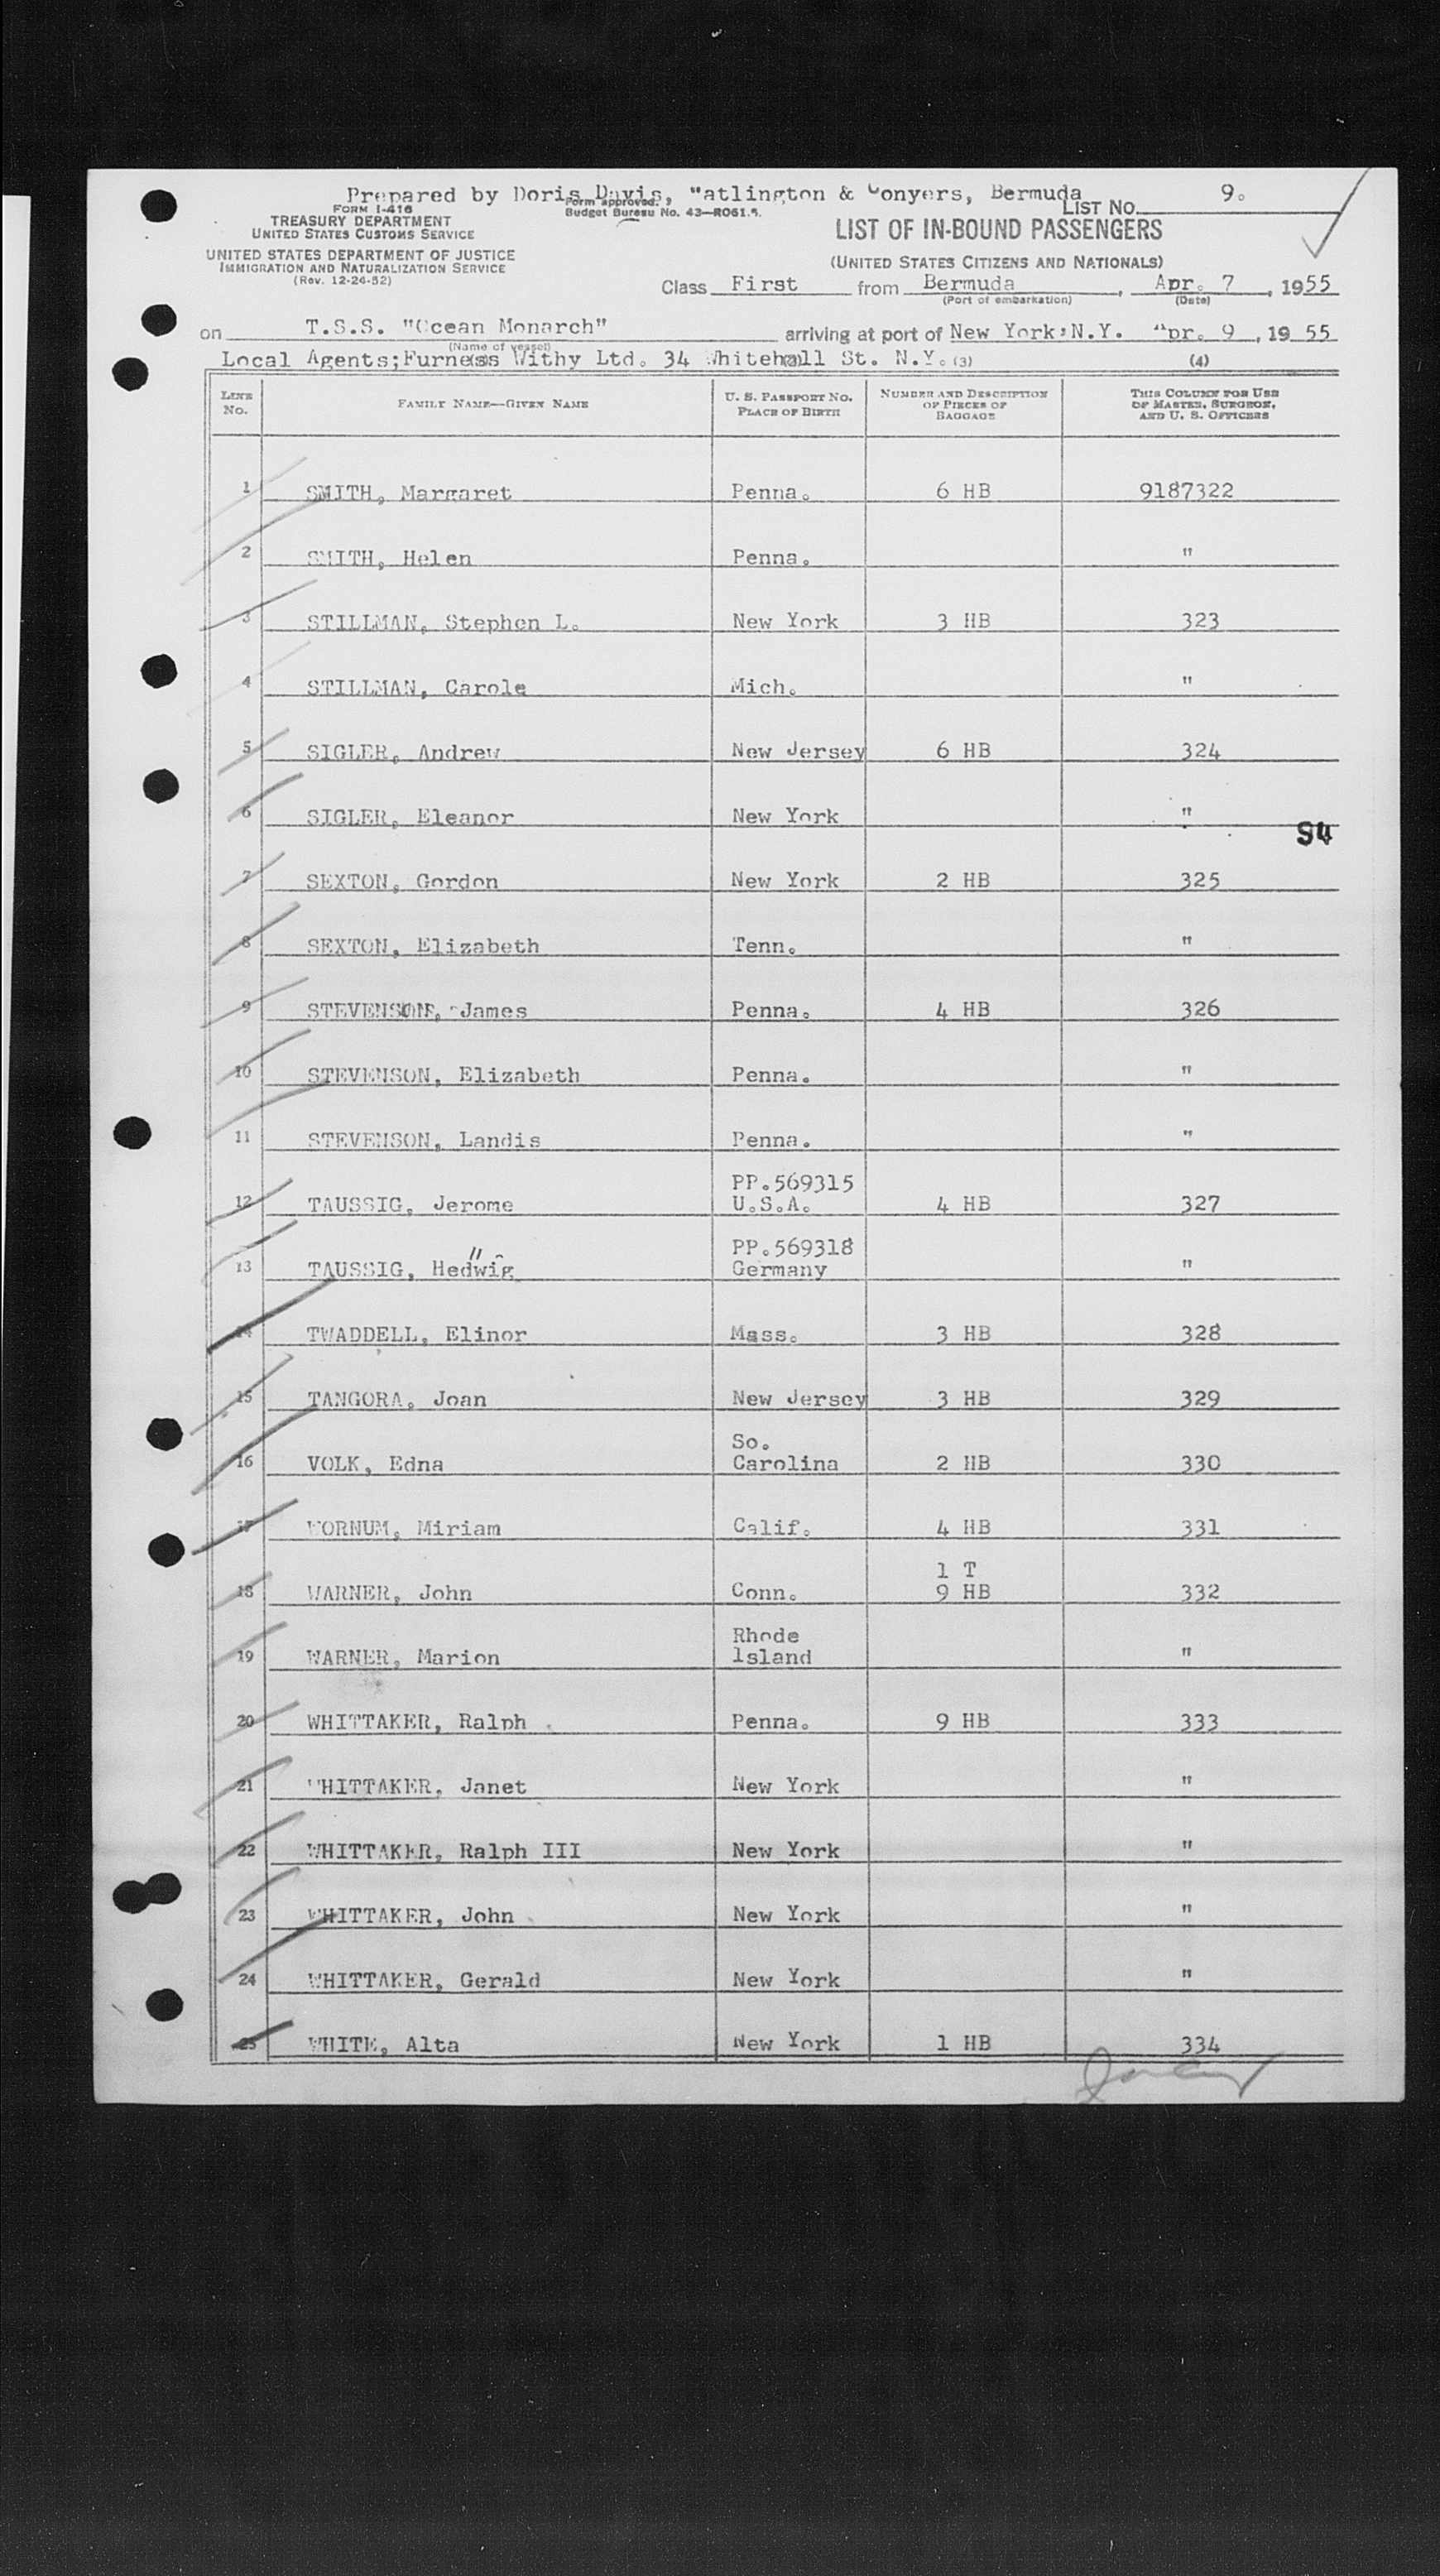 Prepared by Doris Davis, Watlington & Conyers, Bermuda
LIST No. 9.
FORM I-416
TREASURY DEPARTMENT
UNITED STATES CUSTOMS SERVICE
Form approved.
Budget Bureau No. 43—R061.5.
UNITED STATES DEPARTMENT OF JUSTICE
IMMIGRATION AND NATURALIZATION SERVICE
(Rev. 12-24-52)
LIST OF IN-BOUND PASSENGERS
(UNITED STATES CITIZENS AND NATIONALS)
Class First from Bermuda, Apr. 7, 1955
(Port of embarkation) (Date)
on T.S.S. "Ocean Monarch" arriving at port of New York, N.Y. Apr. 9, 1955
(Name of vessel)
Local Agents; Furness Withy Ltd. 34 Whitehall St. N.Y. (3) (4)
LINE No. FAMILY NAME—GIVEN NAME U. S. PASSPORT NO. PLACE OF BIRTH NUMBER AND DESCRIPTION OF PIECES OF BAGGAGE THIS COLUMN FOR USE OF MASTER, SURGEON, AND U. S. OFFICERS
1 SMITH, Margaret Penna. 6 HB 9187322
2 SMITH, Helen Penna. "
3 STILLMAN, Stephen L. New York 3 HB 323
4 STILLMAN, Carole Mich. "
5 SIGLER, Andrew New Jersey 6 HB 324
6 SIGLER, Eleanor New York "
S4
7 SEXTON, Gordon New York 2 HB 325
8 SEXTON, Elizabeth Tenn. "
9 STEVENSON, James Penna. 4 HB 326
10 STEVENSON, Elizabeth Penna. "
11 STEVENSON, Landis Penna. "
12 TAUSSIG, Jerome PP.569315 U.S.A. 4 HB 327
13 TAUSSIG, Hedwig PP.569318 Germany "
14 TWADDELL, Elinor Mass. 3 HB 328
15 TANGORA, Joan New Jersey 3 HB 329
16 VOLK, Edna So. Carolina 2 HB 330
17 WORNUM, Miriam Calif. 4 HB 331
18 WARNER, John Conn. 1 T 9 HB 332
19 WARNER, Marion Rhode Island "
20 WHITTAKER, Ralph Penna. 9 HB 333
21 WHITTAKER, Janet New York "
22 WHITTAKER, Ralph III New York "
23 WHITTAKER, John New York "
24 WHITTAKER, Gerald New York "
25 WHITE, Alta New York 1 HB 334